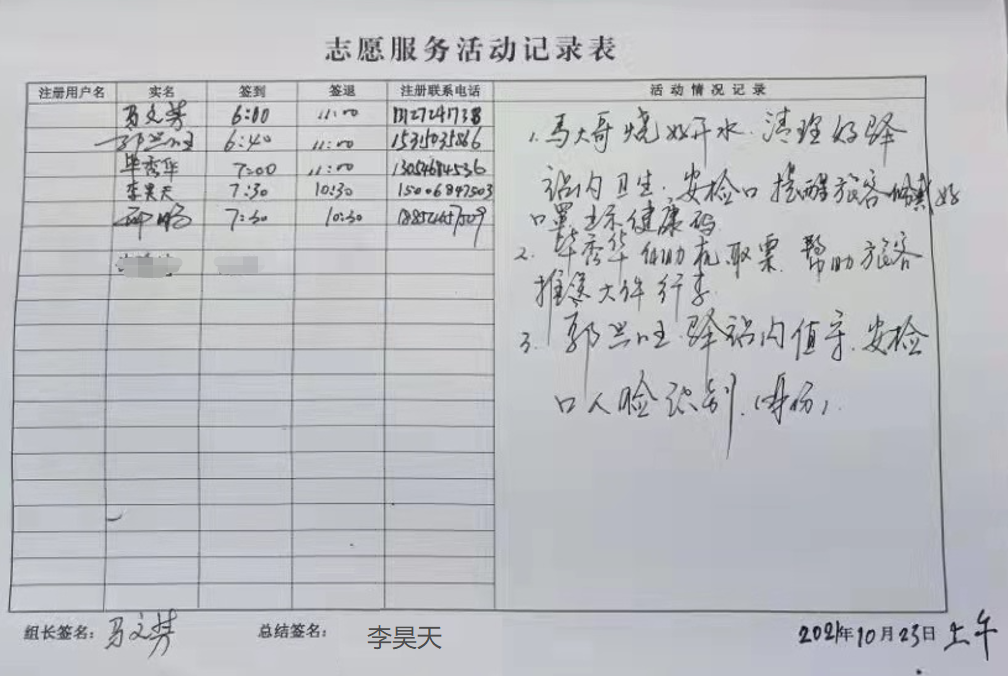 志愿服务活动记录表
注册用户名 实名 签到 签退 注册联系电话 活动情况记录
马文芳 6:00 11:00
郭兴旺 6:40 11:00
毕秀华 7:00 11:00 13054684536
李昊天 7:30 10:30 15006897503
7:30 10:30
1. 马大哥烧好开水.清理好驿
站内卫生.安检口提醒旅客佩戴好
口罩出示健康码
2. 毕秀华 取票 帮助旅客
推送大件行李
3. 郭兴旺.驿站内值守.安检
口人脸识别.(身份).
组长签名: 马文芳 总结签名: 李昊天 2021年10月23日 上午